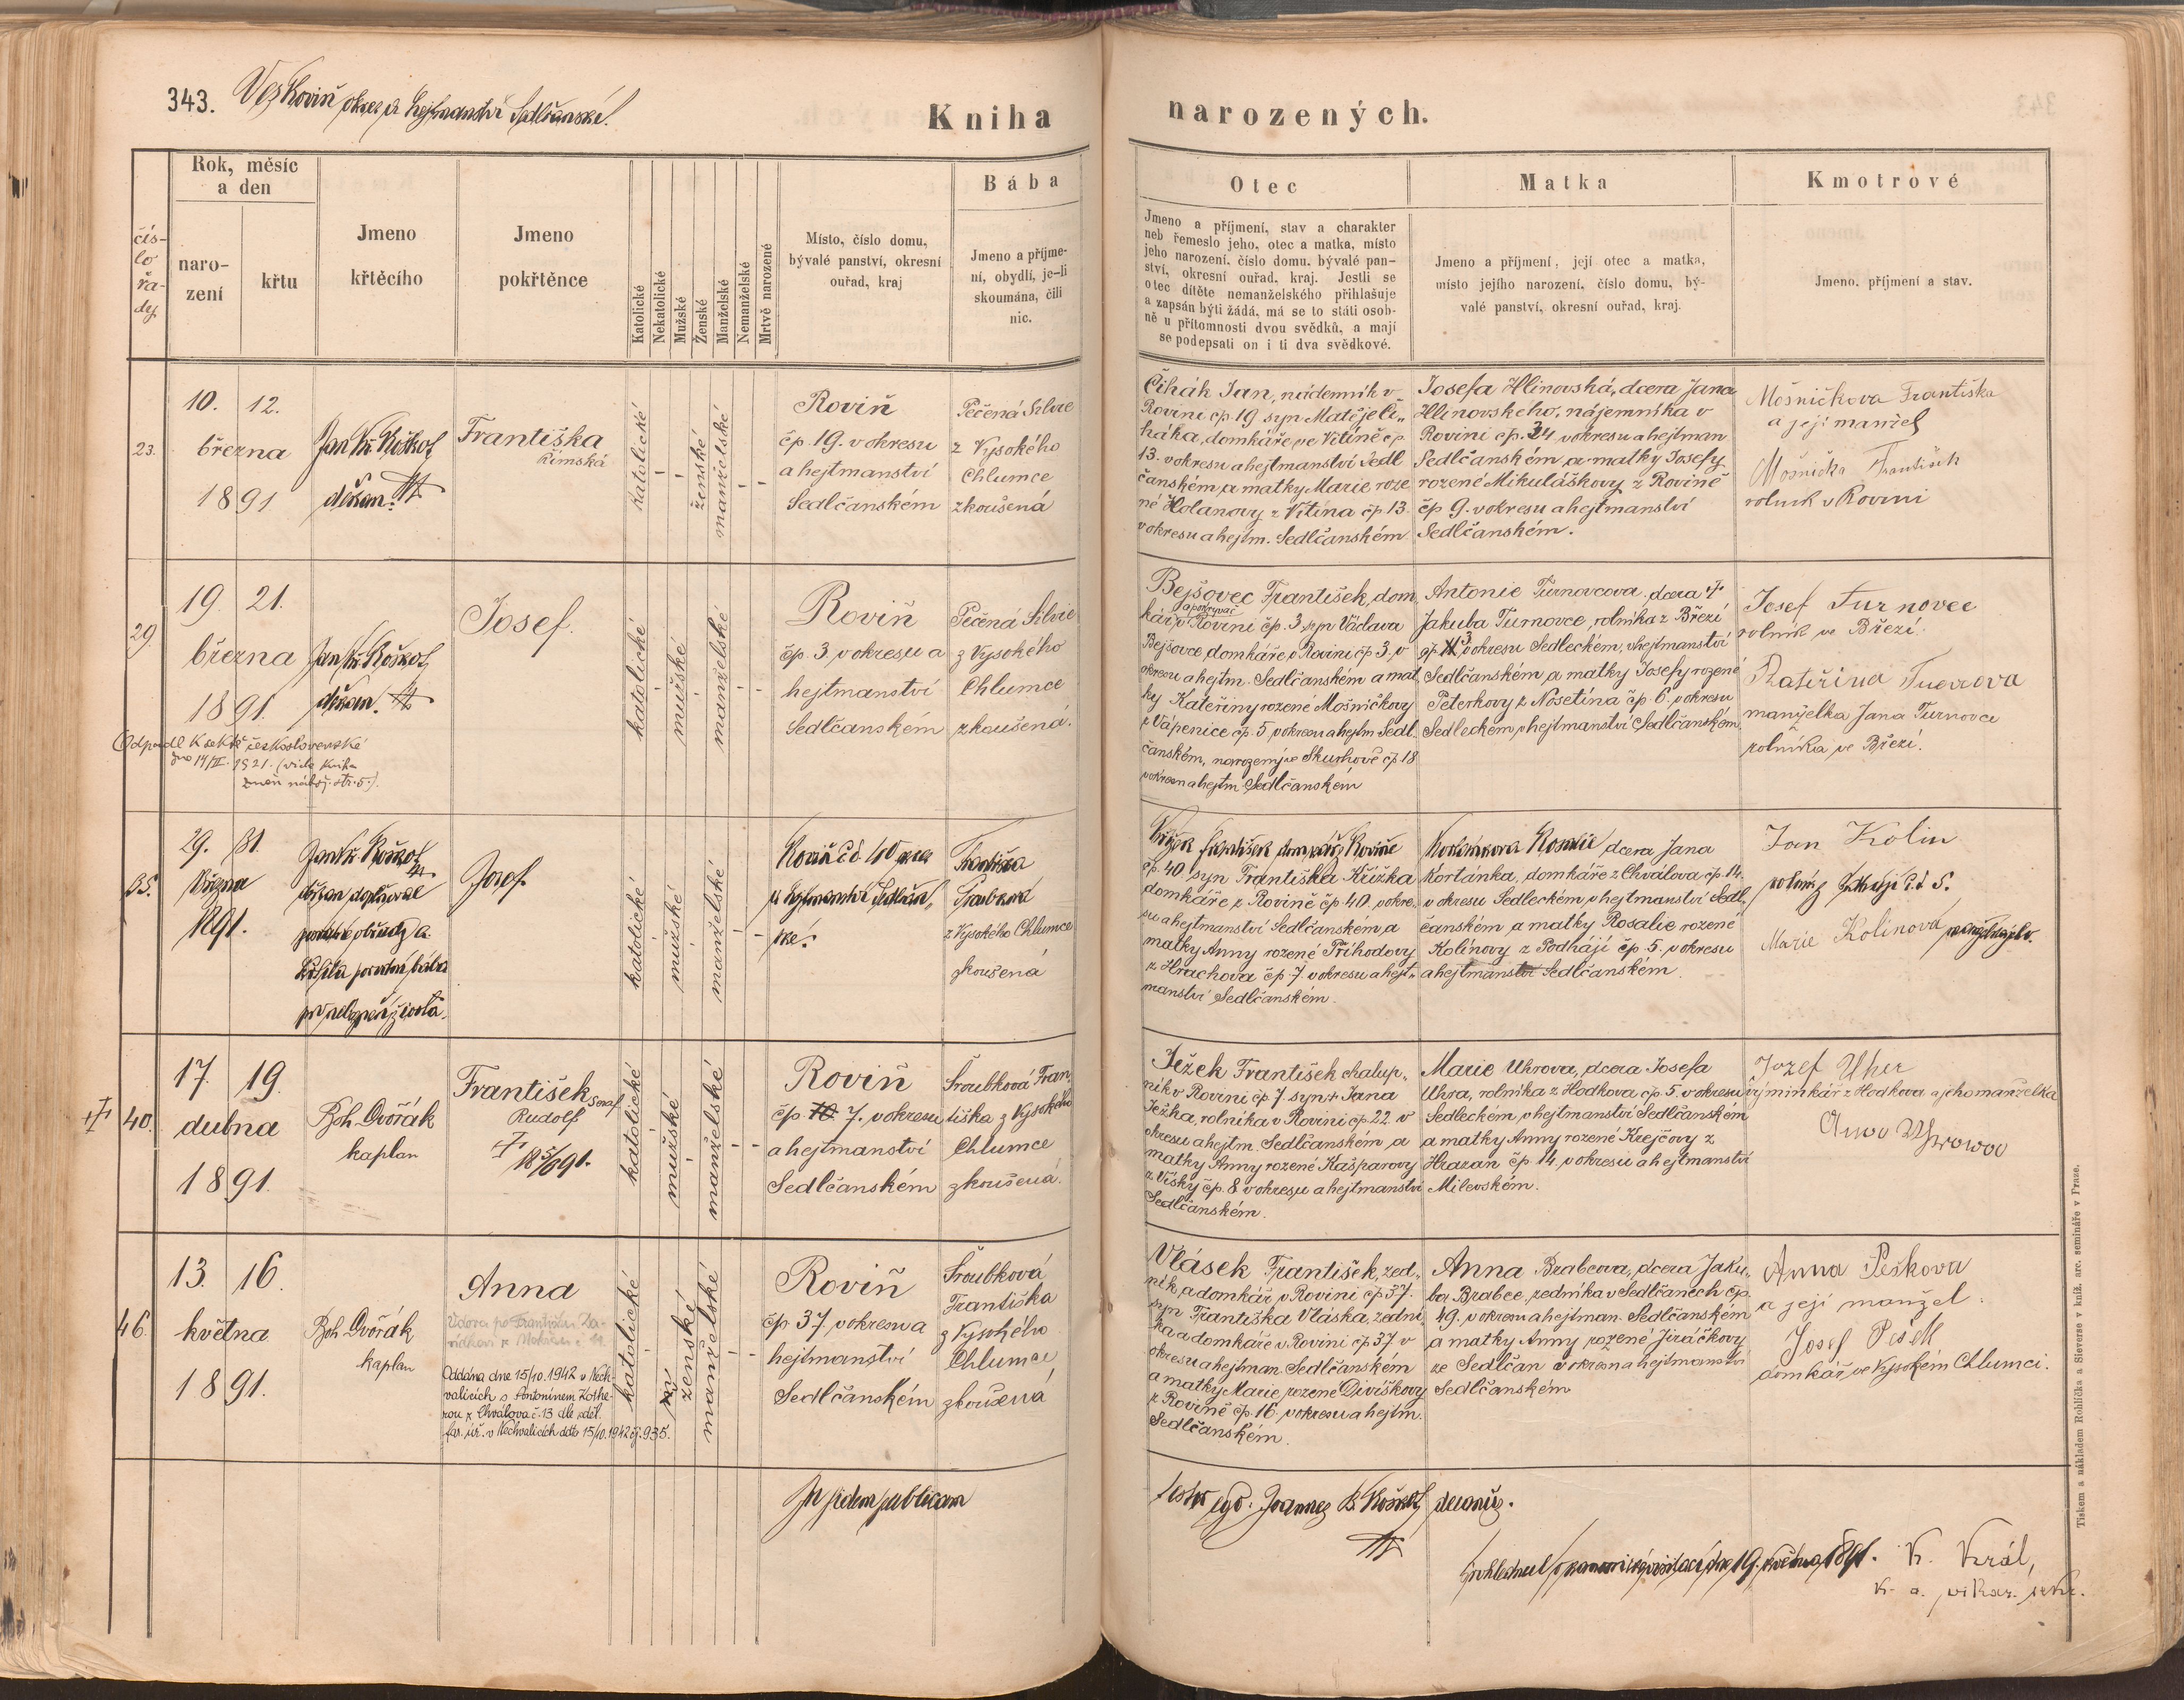 343. Ves Roviň okres a hejtmanství Sedlčanské.
Kniha narozených.
čís-
lo
řa-
dy.
Rok, měsíc
a den
naro-
zení
křtu
Jmeno
křtěcího
Jmeno
pokřtěnce
Katolické
Nekatolické
Mužské
Ženské
Manželské
Nemanželské
Mrtvě narozené
Místo, číslo domu,
bývalé panství, okresní
ouřad, kraj
Bába
Jmeno a příjme-
ní, obydlí, je-li
skoumána, čili
nic.
Otec
Jmeno a příjmení, stav a charakter
neb řemeslo jeho, otec a matka, místo
jeho narození, číslo domu, bývalé pan-
ství, okresní ouřad, kraj. Jestli se
otec dítěte nemanželského přihlašuje
a zapsán býti žádá, má se to státi osob-
ně u přítomnosti dvou svědků, a mají
se podepsati on i ti dva svědkové.
Matka
Jmeno a příjmení, její otec a matka,
místo jejího narození, číslo domu, bý-
valé panství, okresní ouřad, kraj.
Kmotrové
Jmeno, příjmení a stav.
23.
10. 12.
března
1891
Jan Kř. Koškot
děkan.
Františka
Římská
katolické
ženské
manželské
Rovíň
čp. 19. v okresu
a hejtmanství
Sedlčanském
Pečená Silvie
z Vysokého
Chlumce
zkoušená
Čihák Jan, nádenník v
Rovini čp 19 syn Matěje Či-
háka, domkáře ve Vitíně čp
13. v okresu a hejtmanství Sedl
čanském, a matky Marie roze
né Holanovy z Vitína čp 13.
v okresu a hejtm. Sedlčanském
Josefa Hlinovská, dcera Jana
Hlinovského, nájemníka v
Rovini čp. 24 v okresu a hejtman
Sedlčanském a matky Josefy
rozené Mikuláškovy z Rovině
čp 9. v okresu a hejtmanství
Sedlčanském.
Mošničkova Františka
a její manžel
Mošnička František
rolník v Rovini
29.
19. 21.
března
1891.
Jan Kř. Koškot
děkan.
Josef.
Odpadl k sektě československé
dne 14/II. 1921. (vide kniha
změn nábož. str. 5.).
katolické
mužské
manželské
Roviň
čp. 3. v okresu a
hejtmanství
Sedlčanském
Pečená Silvie
z Vysokého
Chlumce
zkoušená.
Bejšovec František, dom-
kář a pokrývač v Rovini čp. 3. syn Václava
Bejšovce, domkáře v Rovini čp 3. v
okresu a hejtm. Sedlčanském a mat
ky Kateřiny rozené Mošničkovy
z Vápenice čp. 5 v okresu a hejtm Sedl-
čanském, narozený ve Skuhově čp 18
v okresu a hejtm Sedlčanském
Antonie Turnovcova, dcera †
Jakuba Turnovce, rolníka z Březí
čp. 3 v okresu Sedleckém, v hejtmanství
Sedlčanském a matky Josefy rozené
Peterkovy z Nosetína čp. 6 v okresu
Sedleckém v hejtmanství Sedlčanském
Josef Turnovec
rolník ve Březí.
Kateřina
manželka Jana Turnovce
rolníka ve Březí.
35.
29. 31.
března
1891.
Jan Kř. Koškot
děkan doplňoval
obřady a
křtila bába
Josef.
katolické
mužské
manželské
Roviň čd. 40 okres
a hejtmanství Sedlčan-
ské.
Františka
Šroubková
z Vysokého Chlumce
zkoušená
Křížek František, domkář z Rovině
čp. 40 syn Františka Křížka
domkáře z Rovině čp 40. v okre-
su a hejtmanství Sedlčanském a
matky Anny rozené Příhodovy
z Hrachova čp. 7. v okresu a hejt-
manství Sedlčanském.
Kortánkova Rosalie dcera Jana
Kortánka, domkáře z Chválova čp. 14.
v okresu Sedleckém v hejtmanství Sedl-
čanském a matky Rosalie rozené
Kolínovy z Podhájí čp. 5. v okresu
a hejtmanství Sedlčanském.
Jan Kolin
rolník z Podhájí čd 5.
Marie Kolinova manželka jeho.
40.
17. 19.
dubna
1891.
Boh. Dvořák
kaplan
František Seraf.
Rudolf
katolické
mužské
manželské
Roviň
čp. 7. v okresu
a hejtmanství
Sedlčanském
Šroubková Fran-
tiška z Vysokého
Chlumce
zkoušená.
Ježek František chalup-
ník v Rovini čp. 7. syn † Jana
Ježka, rolníka v Rovini čp. 22 v
okresu a hejtm. Sedlčanském a
matky Anny rozené Kašparovy
z Višky čp. 8 v okresu a hejtmanství
Sedlčanském.
Marie Uhrova, dcera Josefa
Uhra, rolníka z Hodkova čp. 5. v okresu
Sedleckém v hejtmanství Sedlčanském
a matky Anny rozené Krejčovy z
Hrazan čp 14. v okresu a hejtmanství
Milevském.
Jozef Uher
výminkář z Hodkova a jeho manželka
46.
13. 16.
května
1891.
Boh. Dvořák
kaplan
Anna
Vdova po Františku
Oddána dne 15/10.1942 v Nech-
valicích s Antonínem Kothe-
rou z Chválova č. 13 dle sděl.
far. úř. v Nechvalicích ddto 15/10.1942 čj. 935.
katolické
ženské
manželské
Roviň
čp 37. v okresu a
hejtmanství
Sedlčanském
Šroubková
Františka
z Vysokého
Chlumce
zkoušená
Vlásek František, zed-
ník a domkář v Rovini čp 37.
syn Františka Vláska, zední-
ka a domkáře v Rovini čp 37 v
okresu a hejtman. Sedlčanském
a matky Marie rozené Divíškovy
z Rovině čp. 16. v okresu a hejtm.
Sedlčanském.
Anna Brabcova, dcera Jaku-
ba Brabce, zedníka v Sedlčanech čp.
49. v okresu a hejtman. Sedlčanském
a matky Anny rozené Jiráčkovy
ze Sedlčan v okresu a hejtmanství
Sedlčanském
Anna Peškova
a její manžel.
Josef Pešek
domkář ve Vysokém Chlumci.
In fidem publicam
testor ego. Joannes B. Koškot decanus.
Shlédnul v kanonické visitaci dne 19. května 1891. K. Král,
k. a. vikar. sekr.
Tiskem a nákladem Rohlíčka a Sieverse v kníž. arc. semináře v Praze.